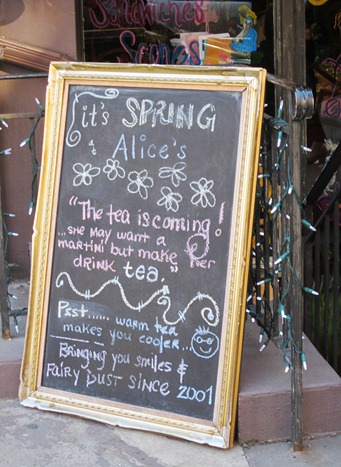 Sandwiches
Scones
it's SPRING
at Alice's
"The tea is coming!
...she may want a
martini but make her
drink tea."
Psst..... warm tea
makes you cooler...
Bringing you smiles &
Fairy Dust since 2001